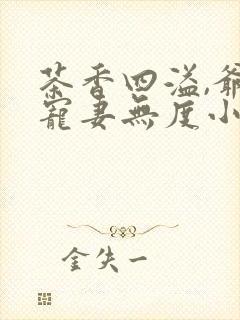 茶香四溢,爺
寵妻無度小
金失一